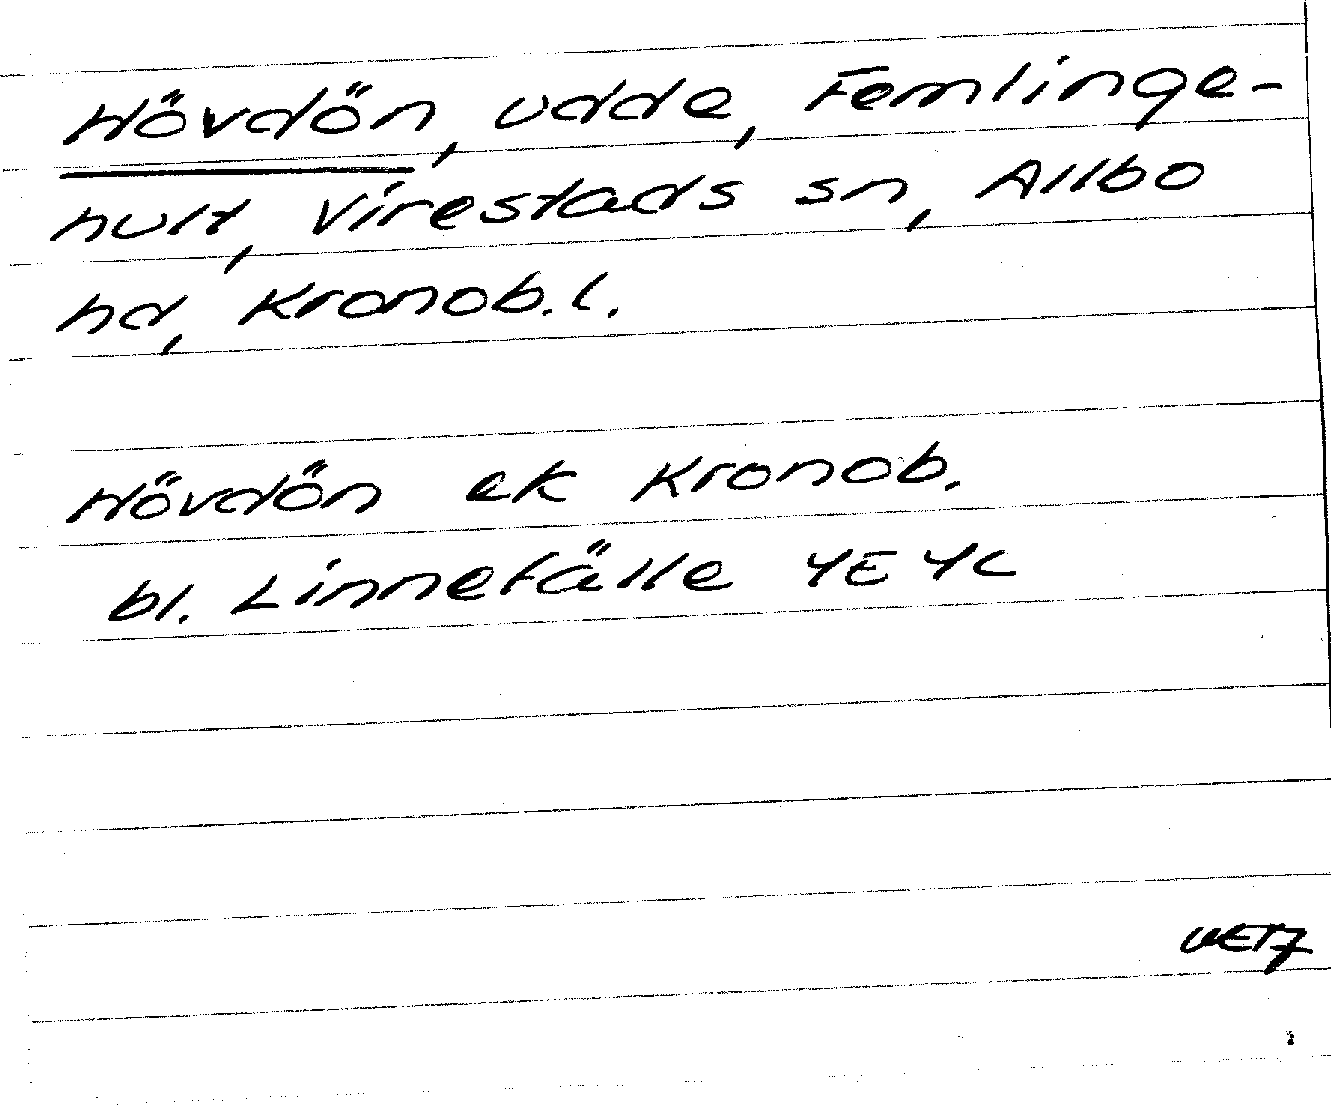 Hövdön, udde, Femlinge-
hult, Virestads sn, Allbo
hd, Kronob. l.
Hövdön ek Kronob.
bl. Linnefälle 4E 4c